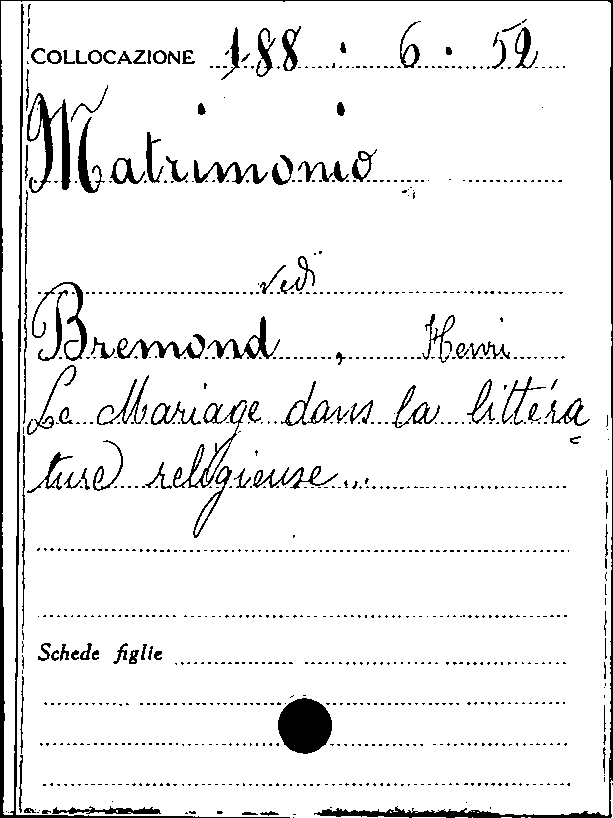 COLLOCAZIONE 188 . 6 . 52
Matrimonio
vedi
Bremond, Henri
Le Mariage dans la littéra=
ture religieuse...
Schede figlie